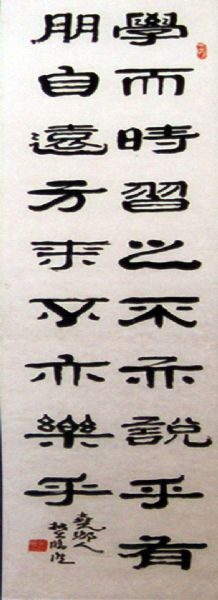 學而時習之不亦說乎有
朋自遠方來不亦樂乎